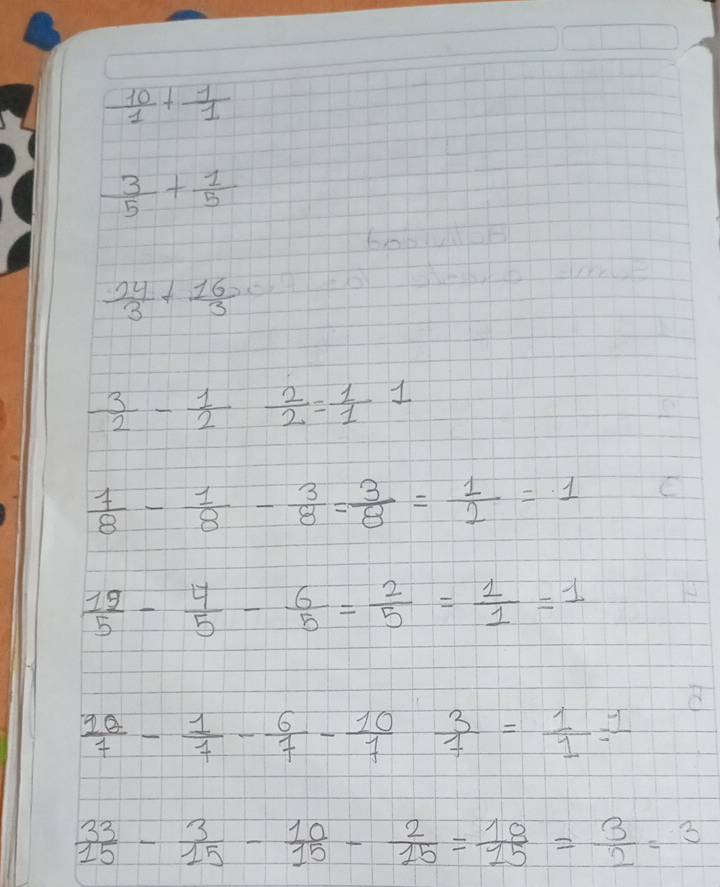 10/1 + 1/1
3/5 + 1/5
24/3 + 16/3
3/2 - 1/2 2/2 = 1/1 1
7/8 - 1/8 - 3/8 = 3/8 = 1/2 = 1
19/5 - 4/5 - 6/5 = 2/5 = 1/1 = 1
20/7 - 1/7 - 6/7 - 10/7 3/7 = 1/1 = 1
33/15 - 3/15 - 10/15 - 2/15 = 18/15 = 3/2 = 3